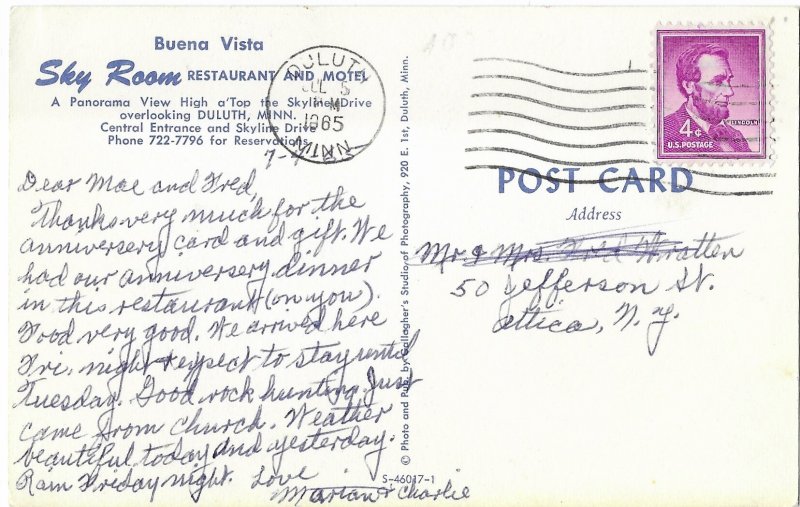 Buena Vista
Sky Room RESTAURANT AND MOTEL
A Panorama View High a'Top the Skyline Drive
overlooking DULUTH, MINN.
Central Entrance and Skyline Drive
Phone 722-7796 for Reservations
DULUTH
JUL 5
M
1965
MINN
7-4
Dear Mae and Fred,
Thanks very much for the
anniversery card and gift. We
had our anniversery dinner
in this restaurant (on you).
Food very good. We arrived here
Fri. night expect to stay until
Tuesday. Good rock hunting. Just
came from Church. Weather
beautiful today and yesterday.
Rain Friday night. Love
Marian & Charlie
© Photo and Pub. by Gallagher's Studio of Photography, 920 E. 1st, Duluth, Minn.
S-46017-1
LINCOLN
4¢
U.S. POSTAGE
POST CARD
Address
Mr. & Mrs. Fred Wratten
50 Jefferson St.
Attica, N.Y.